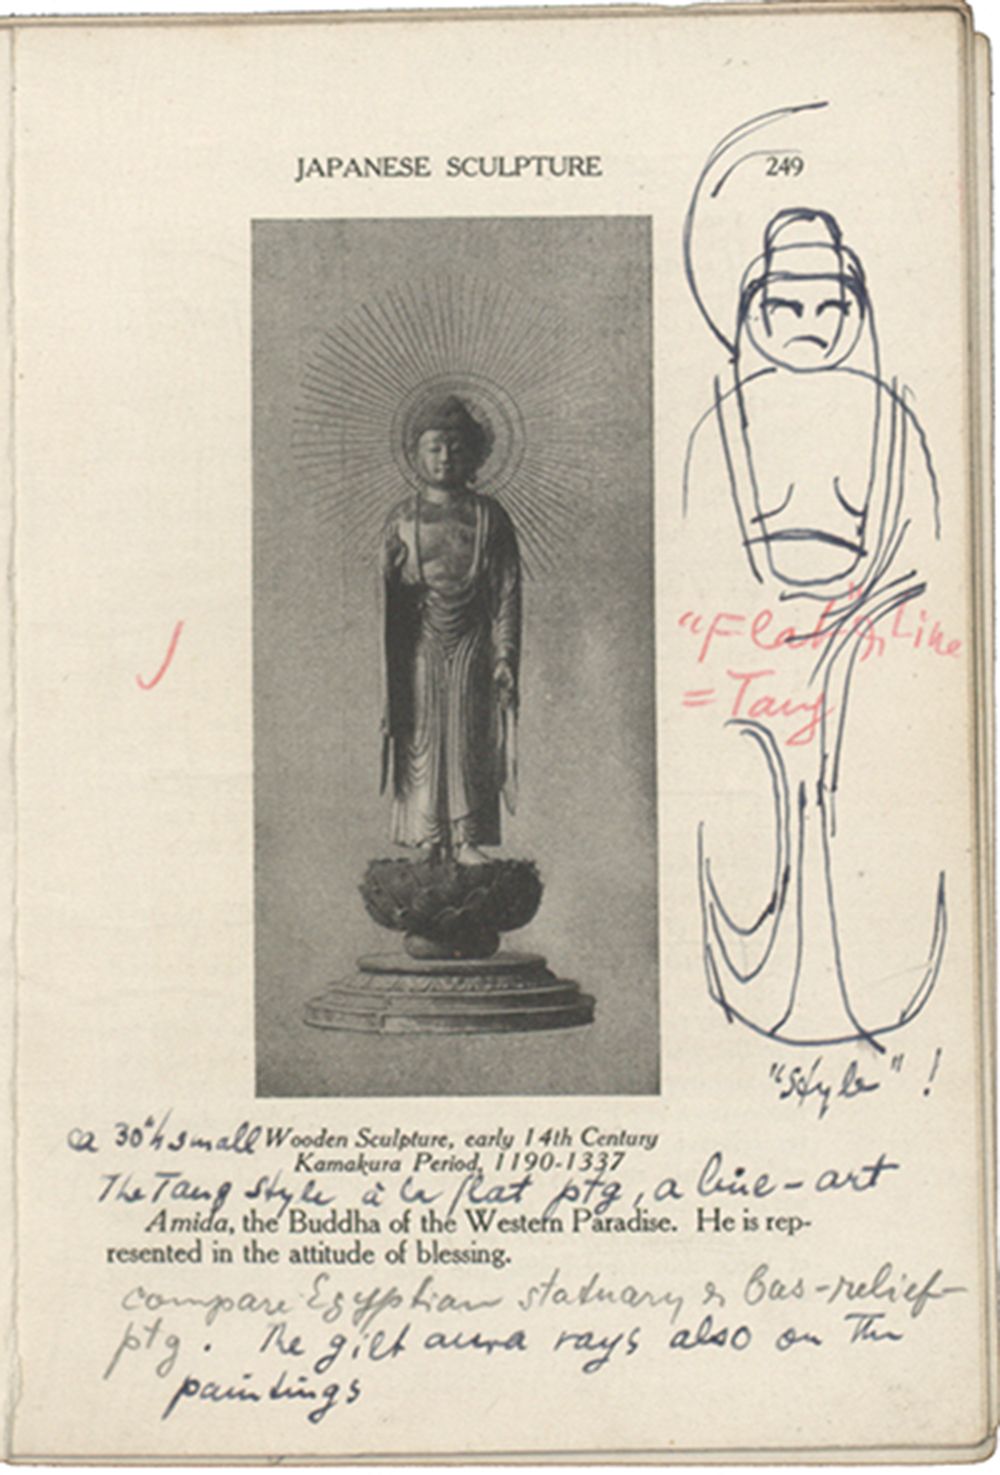 JAPANESE SCULPTURE 249
"Flat" & Line
= Tang
"style" !
a 30"h small Wooden Sculpture, early 14th Century
Kamakura Period, 1190-1337
The Tang style à la flat ptg, a line-art
Amida, the Buddha of the Western Paradise. He is rep-
resented in the attitude of blessing.
compare Egyptian statuary & bas-relief-
ptg. The gilt aura rays also on The
paintings